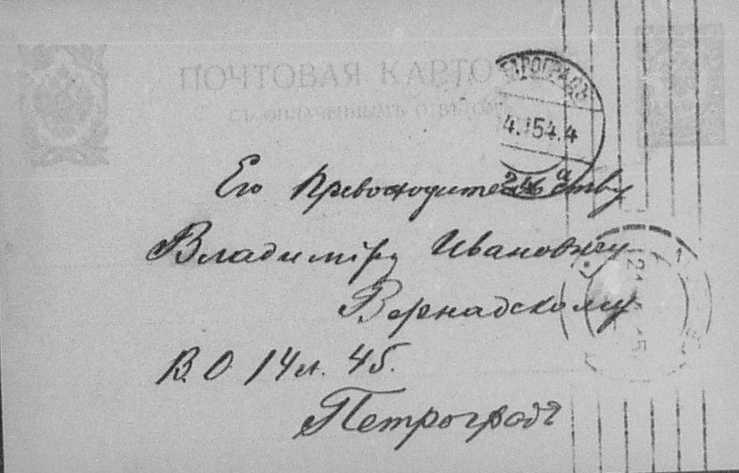 ПОЧТОВАЯ КАРТО
СЪ ОПЛАЧЕННЫМЪ ОТВѢТОМ
ПЕТРОГРАДЪ
Его Превосходительству
Владиміру Ивановичу
Вернадскому
В.О 14 л. 45.
Петроградъ